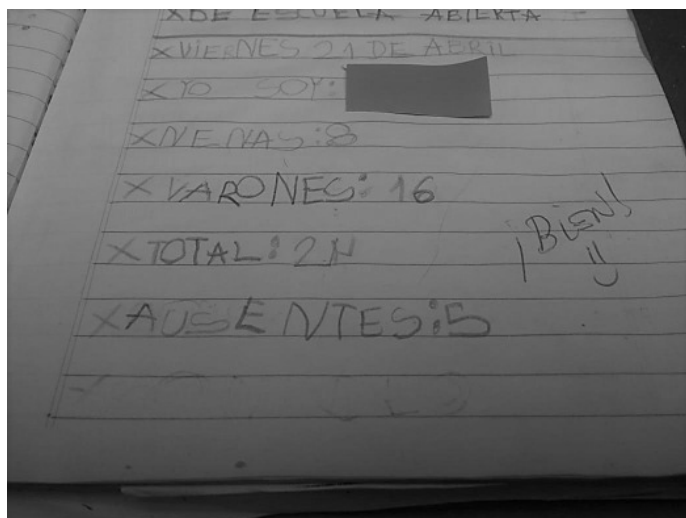 XDE ESCUELA ABIERTA
XVIERNES 21 DE ABRIL
XYO SOY:
XNENAS:8
XVARONES: 16
XTOTAL: 24
XAUSENTES:5
¡BIEN!